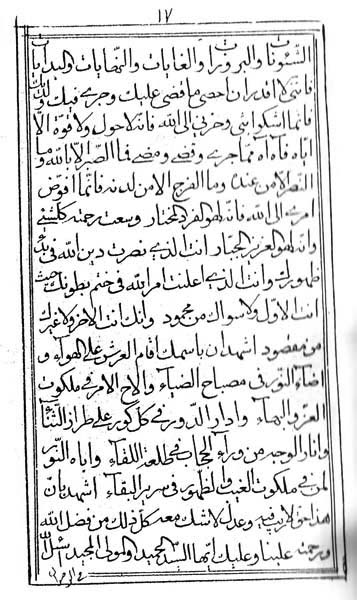 ١٧
الشئونات والبروزات والغايات والنهايات والبدايات
فانني لا اقدر ان احصي ما قضي عليك وجري فيك ولك
فانما اشكوا بثي وحزني الي الله فانه لا حول ولا قوة الا
اياه فآه آه مما جري وقضي ومضي فما الصبر الا بالله وما
النصر الا من عنده وما الفرج الا من لدنه فانما افوض
امري الي الله فانه لهو الفرد المختار وسعت رحمته كلشيئ
وانه لهو العزيز الجبار انت الذي نصرت دين الله في
ظهورك وانت الذي اعلنت امر الله في ختم بطونك حيث
انت الاول ولا سواك من محمود وانك انت الاخر ولا غيرك
من مقصود اشهد ان باسمك اقام العرش علي الهوآء و
اضآء النور في مصباح الضيآء والاح الامر في ملكوت
العز والبهآء وادار الدور في كل كور علي طراز الثنآء
وانار الوجه من ورآء الحجاب في طلعة اللقآء واباه النور
لمن في ملكوت الغيب والظهور في سرير البقآء اشهد بان
هذا حق لا ريب فيه وعدل لا شك معه كل ذلك من فضل الله
ورحمته علينا وعليك انما السيد الحميد والمولي المجيد اسئل الله